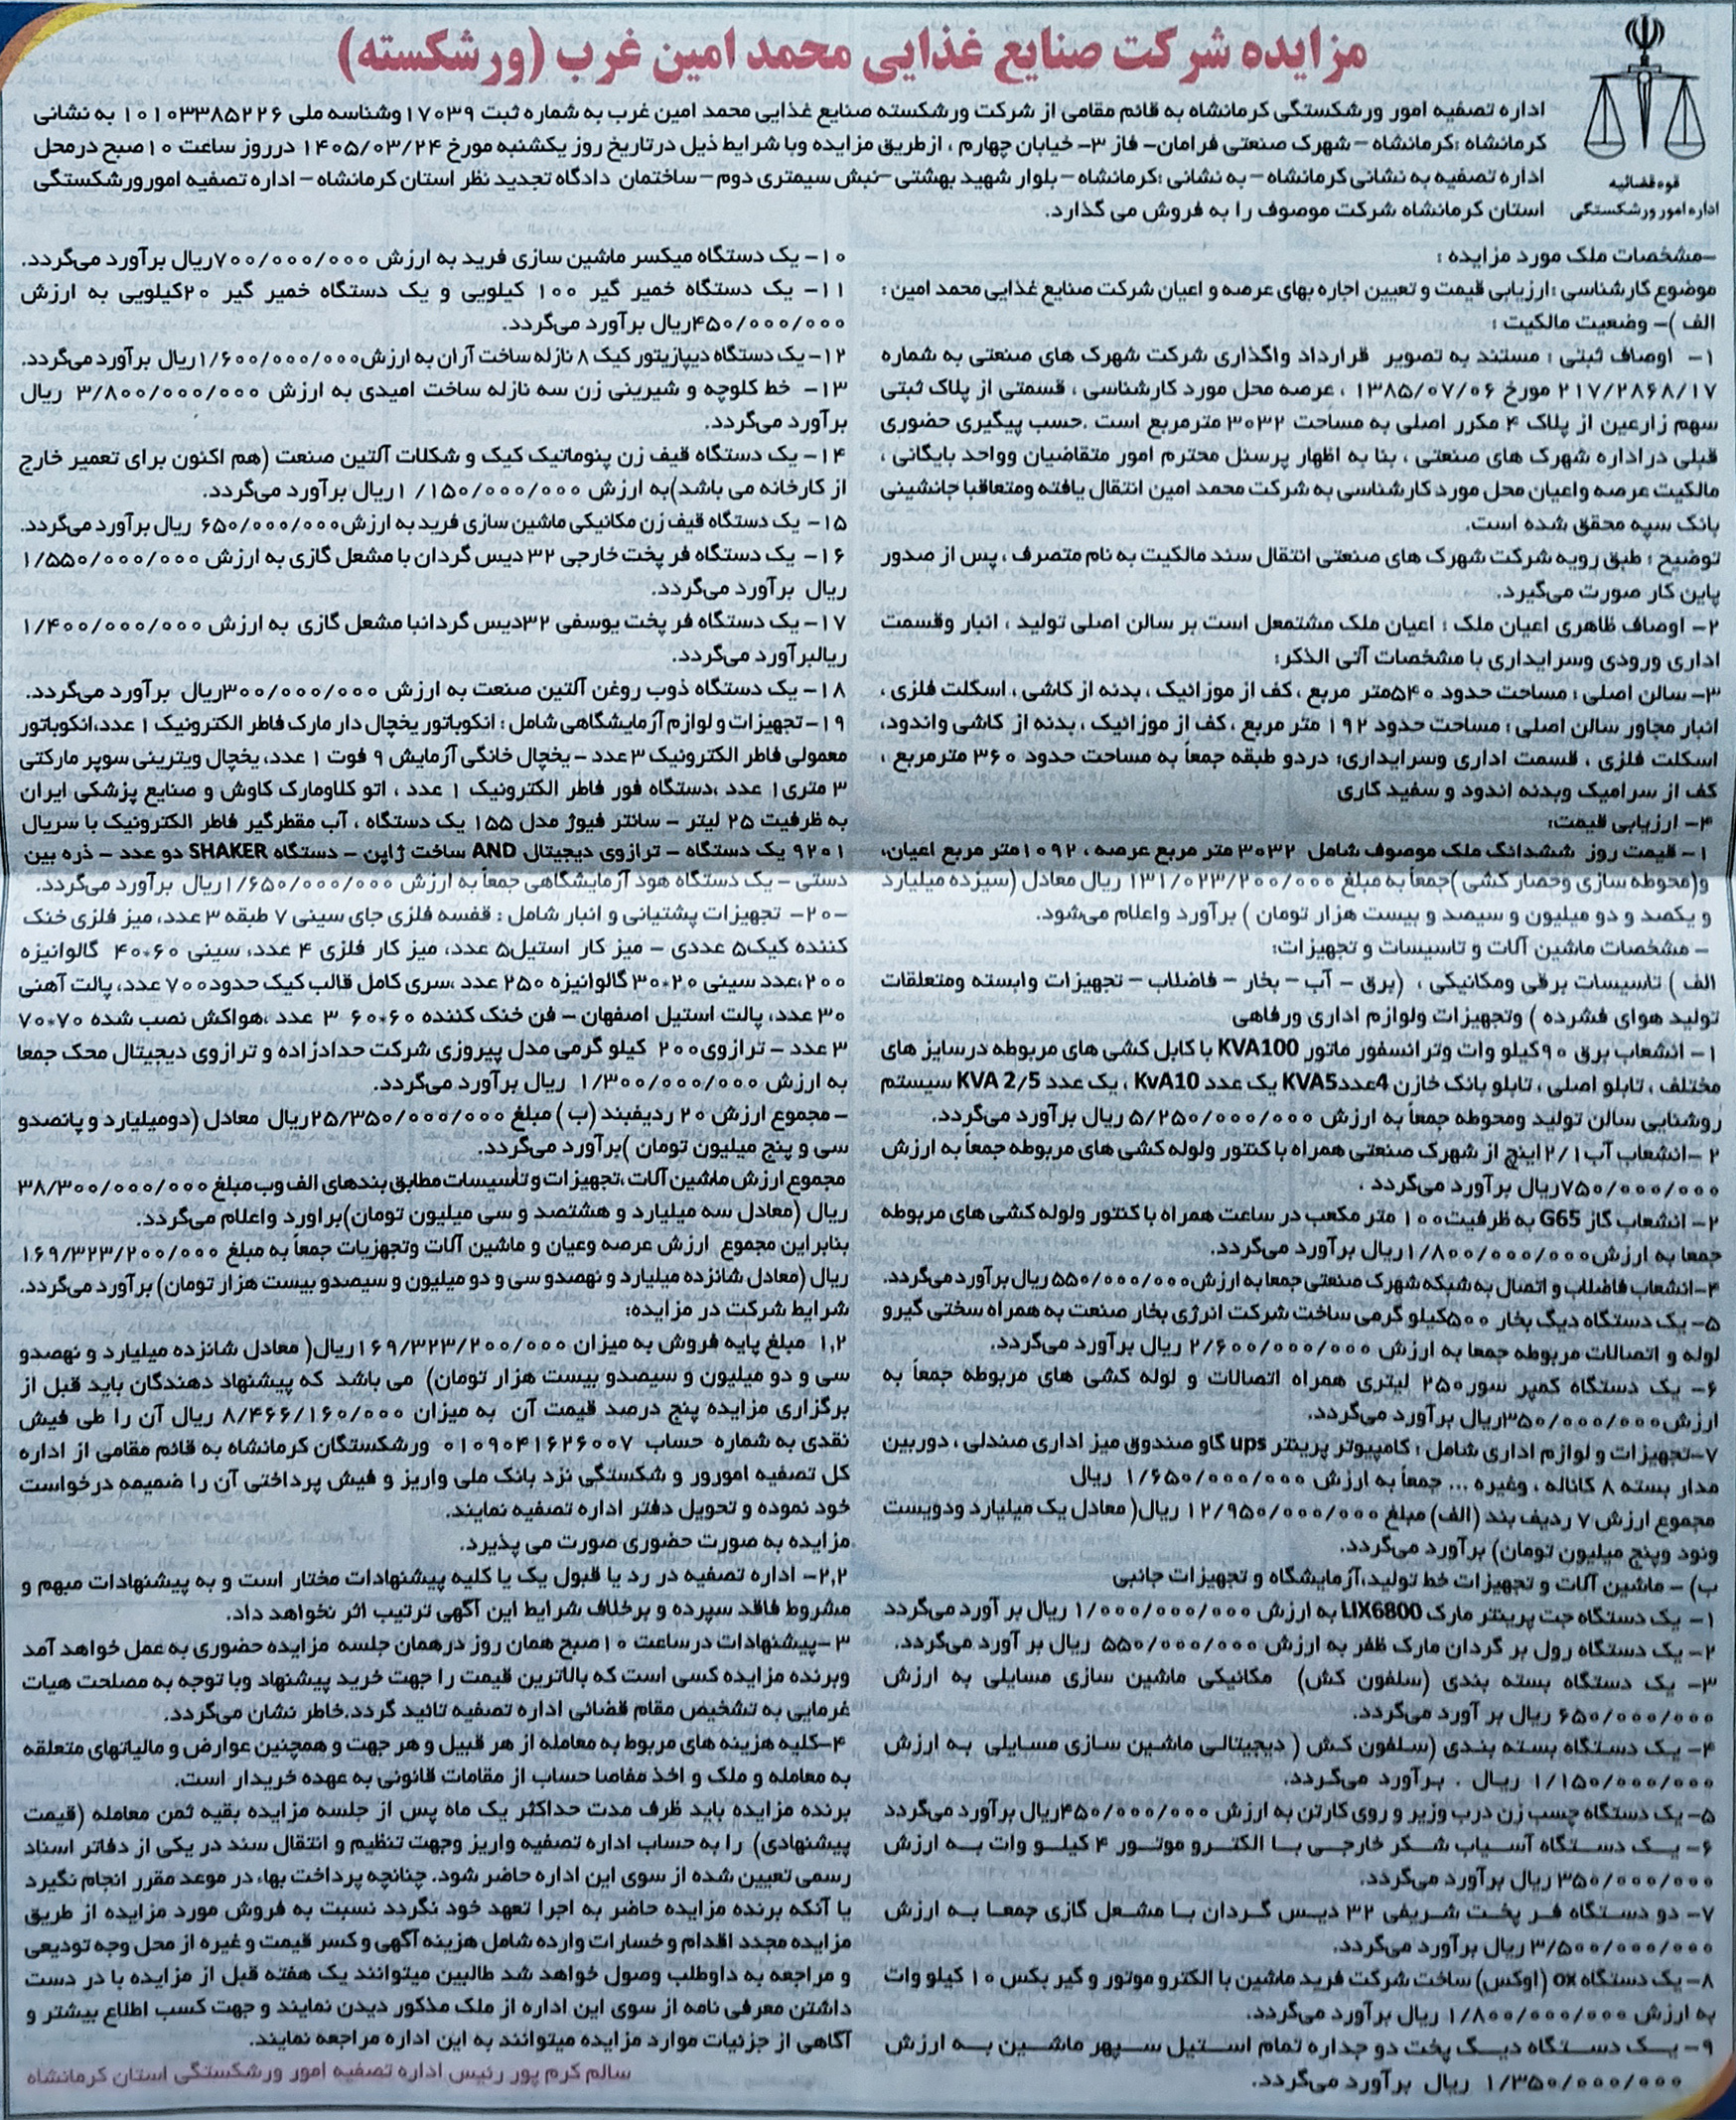 مزایده شرکت صنایع غذایی محمد امین غرب (ورشکسته)
قوه قضائیه
اداره امور ورشکستگی
اداره تصفیه امور ورشکستگی کرمانشاه به قائم مقامی از شرکت ورشکسته صنایع غذایی محمد امین غرب به شماره ثبت ۱۷۰۳۹ وشناسه ملی ۱۰۱۰۳۳۸۵۲۲۶ به نشانی
کرمانشاه :کرمانشاه – شهرک صنعتی فرامان– فاز ۳– خیابان چهارم ، ازطریق مزایده وبا شرایط ذیل درتاریخ روز یکشنبه مورخ ۱۴۰۵/۰۳/۲۴ درروز ساعت ۱۰صبح درمحل
اداره تصفیه به نشانی کرمانشاه– به نشانی :کرمانشاه – بلوار شهید بهشتی –نبش سیمتری دوم– ساختمان دادگاه تجدید نظر استان کرمانشاه – اداره تصفیه امورورشکستگی
استان کرمانشاه شرکت موصوف را به فروش می گذارد.
–مشخصات ملک مورد مزایده :
موضوع کارشناسی :ارزیابی قیمت و تعیین اجاره بهای عرصه و اعیان شرکت صنایع غذایی محمد امین :
الف )– وضعیت مالکیت :
۱– اوصاف ثبتی : مستند به تصویر قرارداد واگذاری شرکت شهرک های صنعتی به شماره
۲۱۷/۲۸۶۸/۱۷ مورخ ۱۳۸۵/۰۷/۰۶ ، عرصه محل مورد کارشناسی ، قسمتی از پلاک ثبتی
سهم زارعین از پلاک ۴ مکرر اصلی به مساحت ۳۰۳۲ مترمربع است .حسب پیگیری حضوری
قبلی دراداره شهرک های صنعتی ، بنا به اظهار پرسنل محترم امور متقاضیان وواحد بایگانی ،
مالکیت عرصه واعیان محل مورد کارشناسی به شرکت محمد امین انتقال یافته ومتعاقبا جانشینی
بانک سپه محقق شده است.
توضیح : طبق رویه شرکت شهرک های صنعتی انتقال سند مالکیت به نام متصرف ، پس از صدور
پاین کار صورت می‌گیرد.
۲– اوصاف ظاهری اعیان ملک : اعیان ملک مشتمعل است بر سالن اصلی تولید ، انبار وقسمت
اداری ورودی وسرایداری با مشخصات آتی الذکر:
۳– سالن اصلی : مساحت حدود ۵۴۰متر مربع ، کف از موزائیک ، بدنه از کاشی ، اسکلت فلزی ،
انبار مجاور سالن اصلی : مساحت حدود ۱۹۲ متر مربع ، کف از موزائیک ، بدنه از کاشی واندود،
اسکلت فلزی ، قسمت اداری وسرایداری: دردو طبقه جمعاً به مساحت حدود ۳۶۰ مترمربع ،
کف از سرامیک وبدنه اندود و سفید کاری
۴– ارزیابی قیمت:
۱– قیمت روز ششدانگ ملک موصوف شامل ۳۰۳۲ متر مربع عرصه ، ۱۰۹۲متر مربع اعیان،
و(محوطه سازی وحصار کشی )جمعاً به مبلغ ۱۳۱/۰۲۳/۲۰۰/۰۰۰ ریال معادل (سیزده میلیارد
و یکصد و دو میلیون و سیصد و بیست هزار تومان ) برآورد واعلام می‌شود.
– مشخصات ماشین آلات و تاسیسات و تجهیزات:
الف ) تاسیسات برقی ومکانیکی ، (برق – آب – بخار – فاضلاب – تجهیزات وابسته ومتعلقات
تولید هوای فشرده ) وتجهیزات ولوازم اداری ورفاهی
۱– انشعاب برق ۹۰کیلو وات وترانسفور ماتور KVA100 با کابل کشی های مربوطه درسایز های
مختلف ، تابلو اصلی ، تابلو بانک خازن 4عددKVA5 یک عدد KvA10 ، یک عدد KVA 2/5 سیستم
روشنایی سالن تولید ومحوطه جمعاً به ارزش ۵/۲۵۰/۰۰۰/۰۰۰ ریال برآورد می‌گردد.
۲ –انشعاب آب۲/۱اینچ از شهرک صنعتی همراه با کنتور ولوله کشی های مربوطه جمعاً به ارزش
۷۵۰/۰۰۰/۰۰۰ریال برآورد می‌گردد .
۲– انشعاب گاز G65 به ظرفیت۱۰۰ متر مکعب در ساعت همراه با کنتور ولوله کشی های مربوطه
جمعا به ارزش۱/۸۰۰/۰۰۰/۰۰۰ریال برآورد می‌گردد.
۴–انشعاب فاضلاب و اتصال به شبکه شهرک صنعتی جمعا به ارزش۵۵۰/۰۰۰/۰۰۰ ریال برآورد می‌گردد.
۵– یک دستگاه دیگ بخار ۵۰۰کیلو گرمی ساخت شرکت انرژی بخار صنعت به همراه سختی گیر و
لوله و اتصالات مربوطه جمعا به ارزش ۲/۶۰۰/۰۰۰/۰۰۰ ریال برآورد می‌گردد.
۶– یک دستگاه کمپر سور۲۵۰ لیتری همراه اتصالات و لوله کشی های مربوطه جمعاً به
ارزش۳۵۰/۰۰۰/۰۰۰ریال برآورد می‌گردد.
۷–تجهیزات و لوازم اداری شامل : کامپیوتر پرینتر ups گاو صندوق میز اداری صندلی ، دوربین
مدار بسته ۸ کاناله ، وغیره ... جمعاً به ارزش ۱/۶۵۰/۰۰۰/۰۰۰ ریال
مجموع ارزش ۷ ردیف بند (الف) مبلغ ۱۲/۹۵۰/۰۰۰/۰۰۰ ریال( معادل یک میلیارد ودویست
ونود وپنج میلیون تومان) برآورد می‌گردد.
ب) – ماشین آلات و تجهیزات خط تولید،آزمایشگاه و تجهیزات جانبی
۱– یک دستگاه جت پرینتر مارک LIX6800 به ارزش ۱/۰۰۰/۰۰۰/۰۰۰ ریال بر آورد می‌گردد
۲– یک دستگاه رول بر گردان مارک ظفر به ارزش ۵۵۰/۰۰۰/۰۰۰ ریال بر آورد می‌گردد.
۳– یک دستگاه بسته بندی (سلفون کش) مکانیکی ماشین سازی مسایلی به ارزش
۶۵۰/۰۰۰/۰۰۰ ریال بر آورد می‌گردد.
۴– یک دستگاه بسته بندی (سلفون کش ( دیجیتالی ماشین سازی مسایلی به ارزش
۱/۱۵۰/۰۰۰/۰۰۰ ریال . برآورد می‌گردد.
۵– یک دستگاه چسب زن درب وزیر و روی کارتن به ارزش ۴۵۰/۰۰۰/۰۰۰ریال برآورد می‌گردد
۶– یک دستگاه آسیاب شکر خارجی با الکترو موتور ۴ کیلو وات به ارزش
۳۵۰/۰۰۰/۰۰۰ ریال برآورد می‌گردد.
۷– دو دستگاه فر پخت شریفی ۳۲ دیس گردان با مشعل گازی جمعا به ارزش
۳/۵۰۰/۰۰۰/۰۰۰ ریال برآورد می‌گردد.
۸– یک دستگاه ox (اوکس) ساخت شرکت فرید ماشین با الکترو موتور و گیر بکس ۱۰ کیلو وات
به ارزش ۱/۸۰۰/۰۰۰/۰۰۰ ریال برآورد می‌گردد.
۹– یک دستگاه دیگ پخت دو جداره تمام استیل سپهر ماشین به ارزش
۱/۳۵۰/۰۰۰/۰۰۰ ریال برآورد می‌گردد.
۱۰– یک دستگاه میکسر ماشین سازی فرید به ارزش ۷۰۰/۰۰۰/۰۰۰ریال برآورد می‌گردد.
۱۱– یک دستگاه خمیر گیر ۱۰۰ کیلویی و یک دستگاه خمیر گیر ۲۰کیلویی به ارزش
۴۵۰/۰۰۰/۰۰۰ریال برآورد می‌گردد.
۱۲–یک دستگاه دیپازیتور کیک ۸ نازله ساخت آران به ارزش۱/۶۰۰/۰۰۰/۰۰۰ریال برآورد می‌گردد.
۱۳– خط کلوچه و شیرینی زن سه نازله ساخت امیدی به ارزش ۳/۸۰۰/۰۰۰/۰۰۰ ریال
برآورد می‌گردد.
۱۴– یک دستگاه قیف زن پنوماتیک کیک و شکلات آلتین صنعت (هم اکنون برای تعمیر خارج
از کارخانه می باشد)به ارزش ۱/۱۵۰/۰۰۰/۰۰۰ریال برآورد می‌گردد.
۱۵– یک دستگاه قیف زن مکانیکی ماشین سازی فرید به ارزش۶۵۰/۰۰۰/۰۰۰ ریال برآورد می‌گردد.
۱۶– یک دستگاه فر پخت خارجی ۳۲ دیس گردان با مشعل گازی به ارزش ۱/۵۵۰/۰۰۰/۰۰۰
ریال برآورد می‌گردد.
۱۷– یک دستگاه فر پخت یوسفی ۳۲دیس گردانبا مشعل گازی به ارزش ۱/۴۰۰/۰۰۰/۰۰۰
ریالبرآورد می‌گردد.
۱۸– یک دستگاه ذوب روغن آلتین صنعت به ارزش ۳۰۰/۰۰۰/۰۰۰ریال برآورد می‌گردد.
۱۹– تجهیزات و لوازم آزمایشگاهی شامل : انکوباتور یخچال دار مارک فاطر الکترونیک ۱ عدد،انکوباتور
معمولی فاطر الکترونیک ۳ عدد – یخچال خانگی آزمایش ۹ فوت ۱ عدد، یخچال ویترینی سوپر مارکتی
۳ متری۱ عدد ،دستگاه فور فاطر الکترونیک ۱ عدد ، اتو کلاومارک کاوش و صنایع پزشکی ایران
به ظرفیت ۲۵ لیتر – سانتر فیوژ مدل ۱۵۵ یک دستگاه ، آب مقطرگیر فاطر الکترونیک با سریال
۹۲۰۱ یک دستگاه – ترازوی دیجیتال AND ساخت ژاپن – دستگاه SHAKER دو عدد – ذره بین
دستی – یک دستگاه هود آزمایشگاهی جمعاً به ارزش ۱/۶۵۰/۰۰۰/۰۰۰ریال برآورد می‌گردد.
–۲۰– تجهیزات پشتیانی و انبار شامل : قفسه فلزی جای سینی ۷ طبقه ۳ عدد، میز فلزی خنک
کننده کیک۵ عددی – میز کار استیل۵ عدد، میز کار فلزی ۴ عدد، سینی ۶۰*۴۰ گالوانیزه
۲۰۰،عدد سینی ۲۰*۳۰ گالوانیزه ۲۵۰ عدد ،سری کامل قالب کیک حدود۷۰۰ عدد، پالت آهنی
۳۰ عدد، پالت استیل اصفهان– فن خنک کننده ۶۰*۶۰ ۳ عدد ،هواکش نصب شده ۷۰*۷۰
۳ عدد – ترازوی۲۰۰ کیلو گرمی مدل پیروزی شرکت حدادزاده و ترازوی دیجیتال محک جمعا
به ارزش ۱/۳۰۰/۰۰۰/۰۰۰ ریال برآورد می‌گردد.
– مجموع ارزش ۲۰ ردیفبند (ب) مبلغ ۲۵/۳۵۰/۰۰۰/۰۰۰ریال معادل (دومیلیارد و پانصدو
سی و پنج میلیون تومان )برآورد می‌گردد.
مجموع ارزش ماشین آلات ،تجهیزات و تأسیسات مطابق بندهای الف وب مبلغ ۳۸/۳۰۰/۰۰۰/۰۰۰
ریال (معادل سه میلیارد و هشتصد و سی میلیون تومان)براورد واعلام می‌گردد.
بنابراین مجموع ارزش عرصه وعیان و ماشین آلات وتجهزیات جمعاً به مبلغ ۱۶۹/۳۲۳/۲۰۰/۰۰۰
ریال (معادل شانزده میلیارد و نهصدو سی و دو میلیون و سیصدو بیست هزار تومان) برآورد می‌گردد.
شرایط شرکت در مزایده:
۱,۲ مبلغ پایه فروش به میزان ۱۶۹/۳۲۳/۲۰۰/۰۰۰ریال( معادل شانزده میلیارد و نهصدو
سی و دو میلیون و سیصدو بیست هزار تومان) می باشد که پیشنهاد دهندگان باید قبل از
برگزاری مزایده پنج درصد قیمت آن به میزان ۸/۴۶۶/۱۶۰/۰۰۰ ریال آن را طی فیش
نقدی به شماره حساب ۰۱۰۹۰۴۱۶۲۶۰۰۷ ورشکستگان کرمانشاه به قائم مقامی از اداره
کل تصفیه امورور و شکستگی نزد بانک ملی واریز و فیش پرداختی آن را ضمیمه درخواست
خود نموده و تحویل دفتر اداره تصفیه نمایند.
مزایده به صورت حضوری صورت می پذیرد.
۲,۲– اداره تصفیه در رد یا قبول یک یا کلیه پیشنهادات مختار است و به پیشنهادات مبهم و
مشروط فاقد سپرده و برخلاف شرایط این آگهی ترتیب اثر نخواهد داد.
۳–پیشنهادات درساعت ۱۰صبح همان روز درهمان جلسه مزایده حضوری به عمل خواهد آمد
وبرنده مزایده کسی است که بالاترین قیمت را جهت خرید پیشنهاد وبا توجه به مصلحت هیات
غرمایی به تشخیص مقام قضائی اداره تصفیه تائید گردد.خاطر نشان می‌گردد.
۴–کلیه هزینه های مربوط به معامله از هر قبیل و هر جهت و همچنین عوارض و مالیاتهای متعلقه
به معامله و ملک و اخذ مفاصا حساب از مقامات قانونی به عهده خریدار است.
برنده مزایده باید ظرف مدت حداکثر یک ماه پس از جلسه مزایده بقیه ثمن معامله (قیمت
پیشنهادی) را به حساب اداره تصفیه واریز وجهت تنظیم و انتقال سند در یکی از دفاتر اسناد
رسمی تعیین شده از سوی این اداره حاضر شود. چنانچه پرداخت بهاء در موعد مقرر انجام نگیرد
یا آنکه برنده مزایده حاضر به اجرا تعهد خود نگردد نسبت به فروش مورد مزایده از طریق
مزایده مجدد اقدام و خسارات وارده شامل هزینه آگهی و کسر قیمت و غیره از محل وجه تودیعی
و مراجعه به داوطلب وصول خواهد شد طالبین میتوانند یک هفته قبل از مزایده با در دست
داشتن معرفی نامه از سوی این اداره از ملک مذکور دیدن نمایند و جهت کسب اطلاع بیشتر و
آگاهی از جزئیات موارد مزایده میتوانند به این اداره مراجعه نمایند.
سالم کرم پور رئیس اداره تصفیه امور ورشکستگی استان کرمانشاه